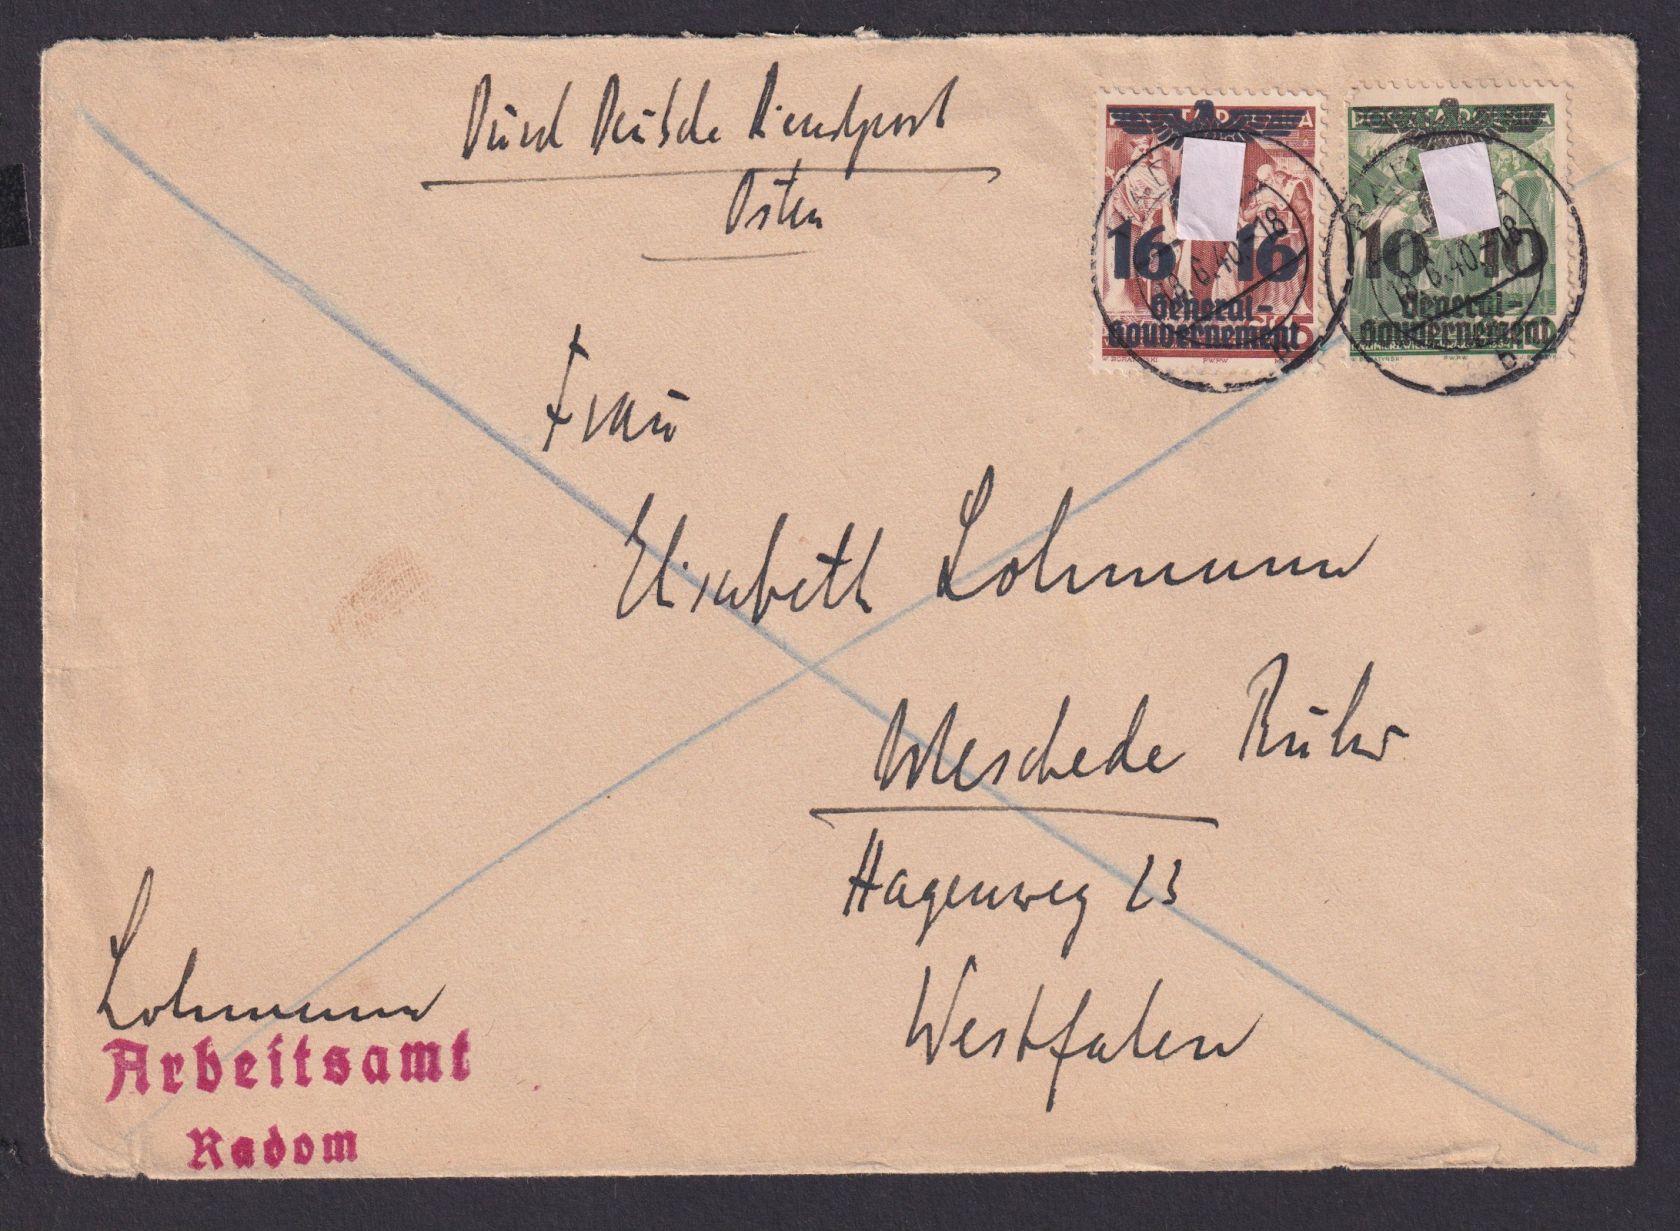 Durch Deutsche Dienstpost
Osten
POCZTA POLSKA
16 16
General-
gouvernement
10 10
General-
gouvernement
18.6.40.-18
b
18.6.40.-18
b
Frau
Elisabeth Lohmann
Meschede Ruhr
Hagenweg 23
Westfalen
Lohmann
Arbeitsamt
Radom